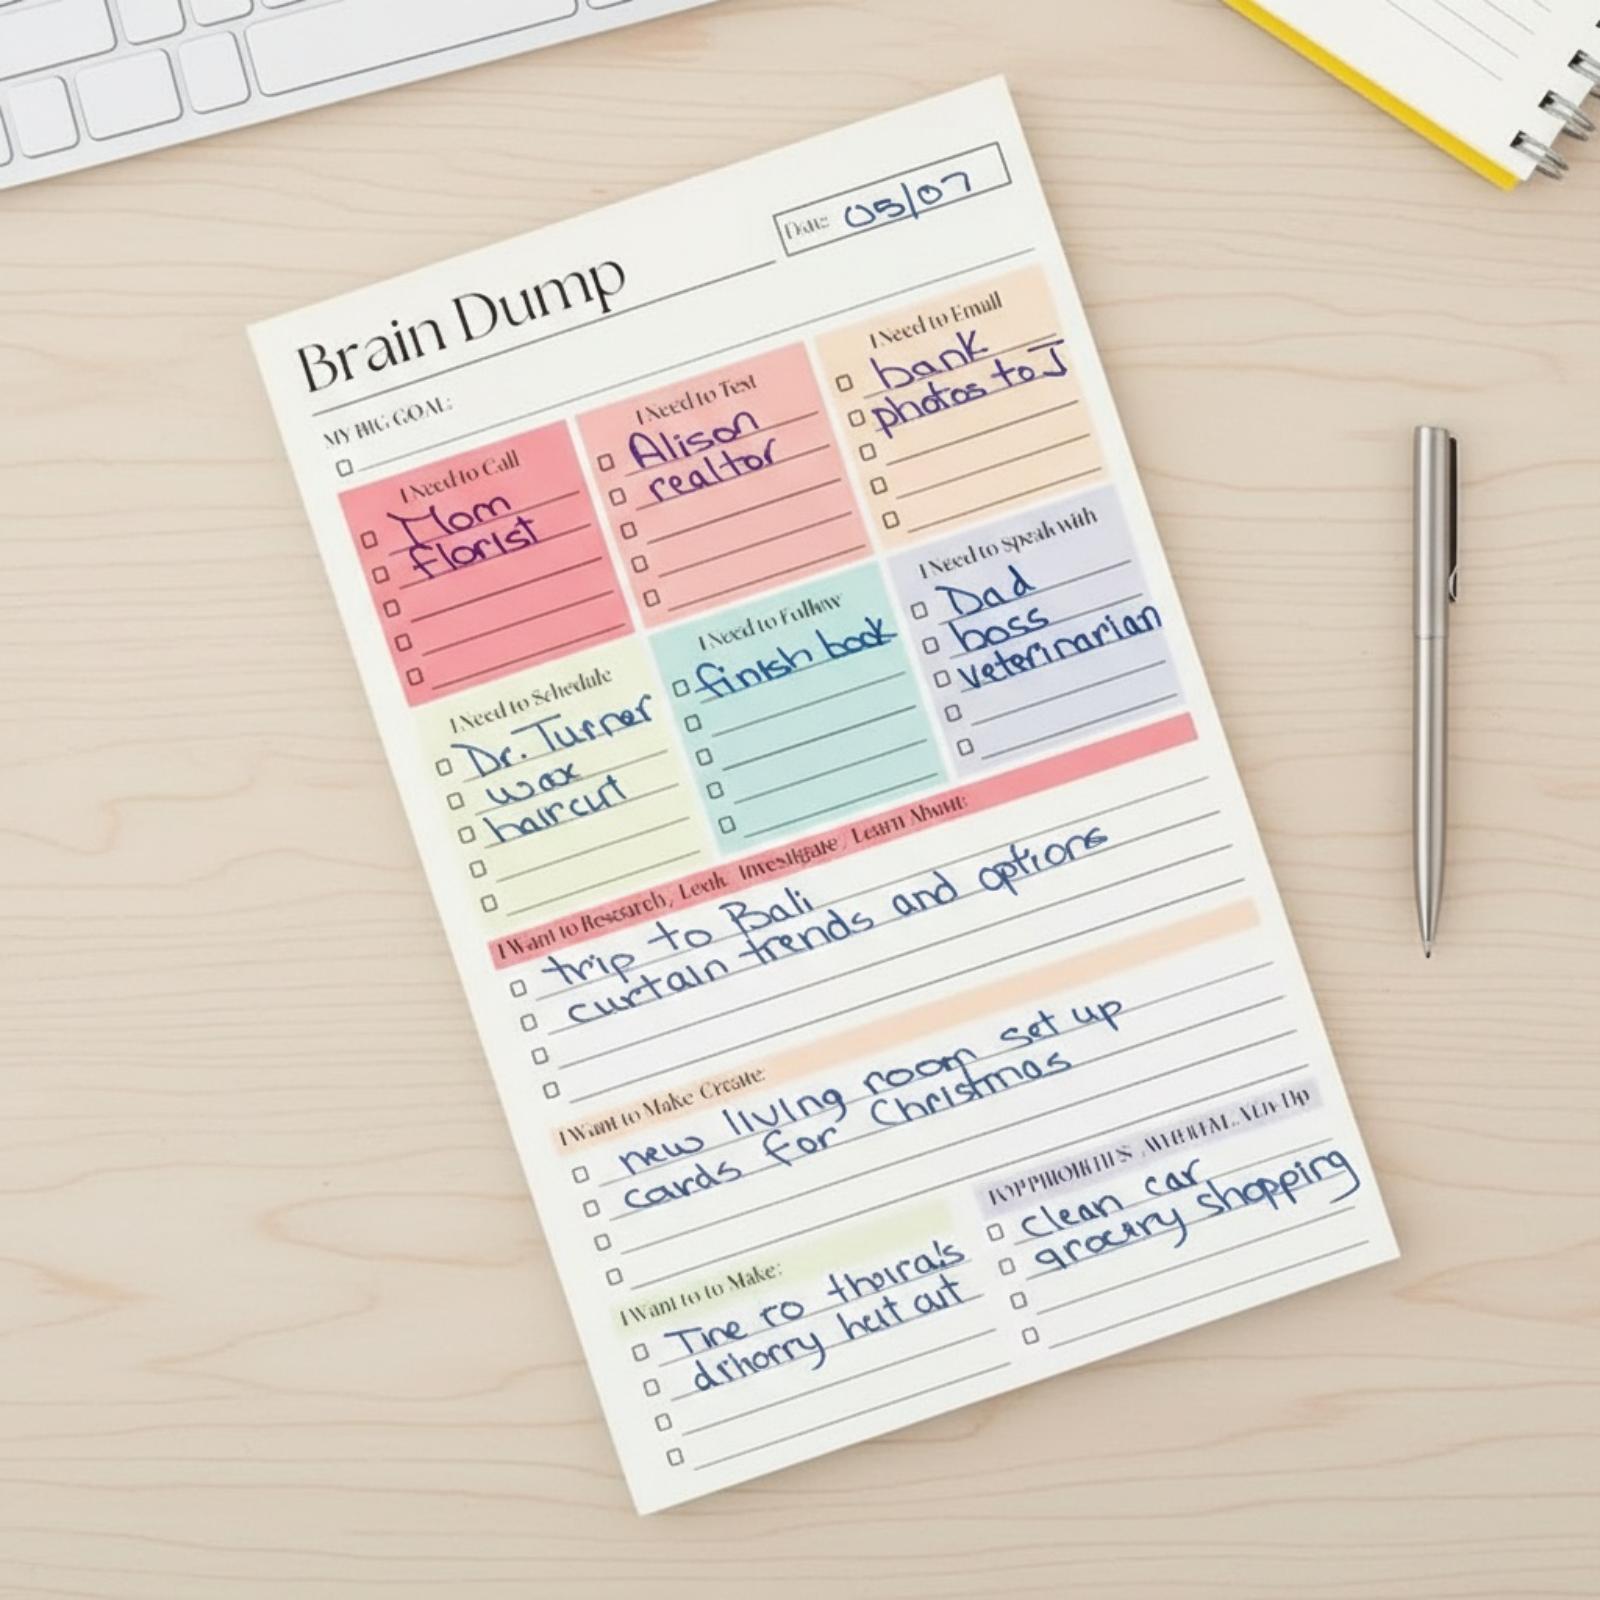 Brain Dump
Date: 05/07
MY BIG GOAL:
I Need to Call
Mom
florist
I Need to Text
Alison
realtor
I Need to Email
bank
photos to J
I Need to Schedule
Dr. Turner
wax
haircut
I Need to Follow
finish book
I Need to Speak with
Dad
boss
veterinarian
I Want to Research, Look, Investigate, Learn About:
trip to Bali
curtain trends and options
I Want to Make Create:
new living room set up
cards for Christmas
I Want to to Make:
clean car
grocery shopping